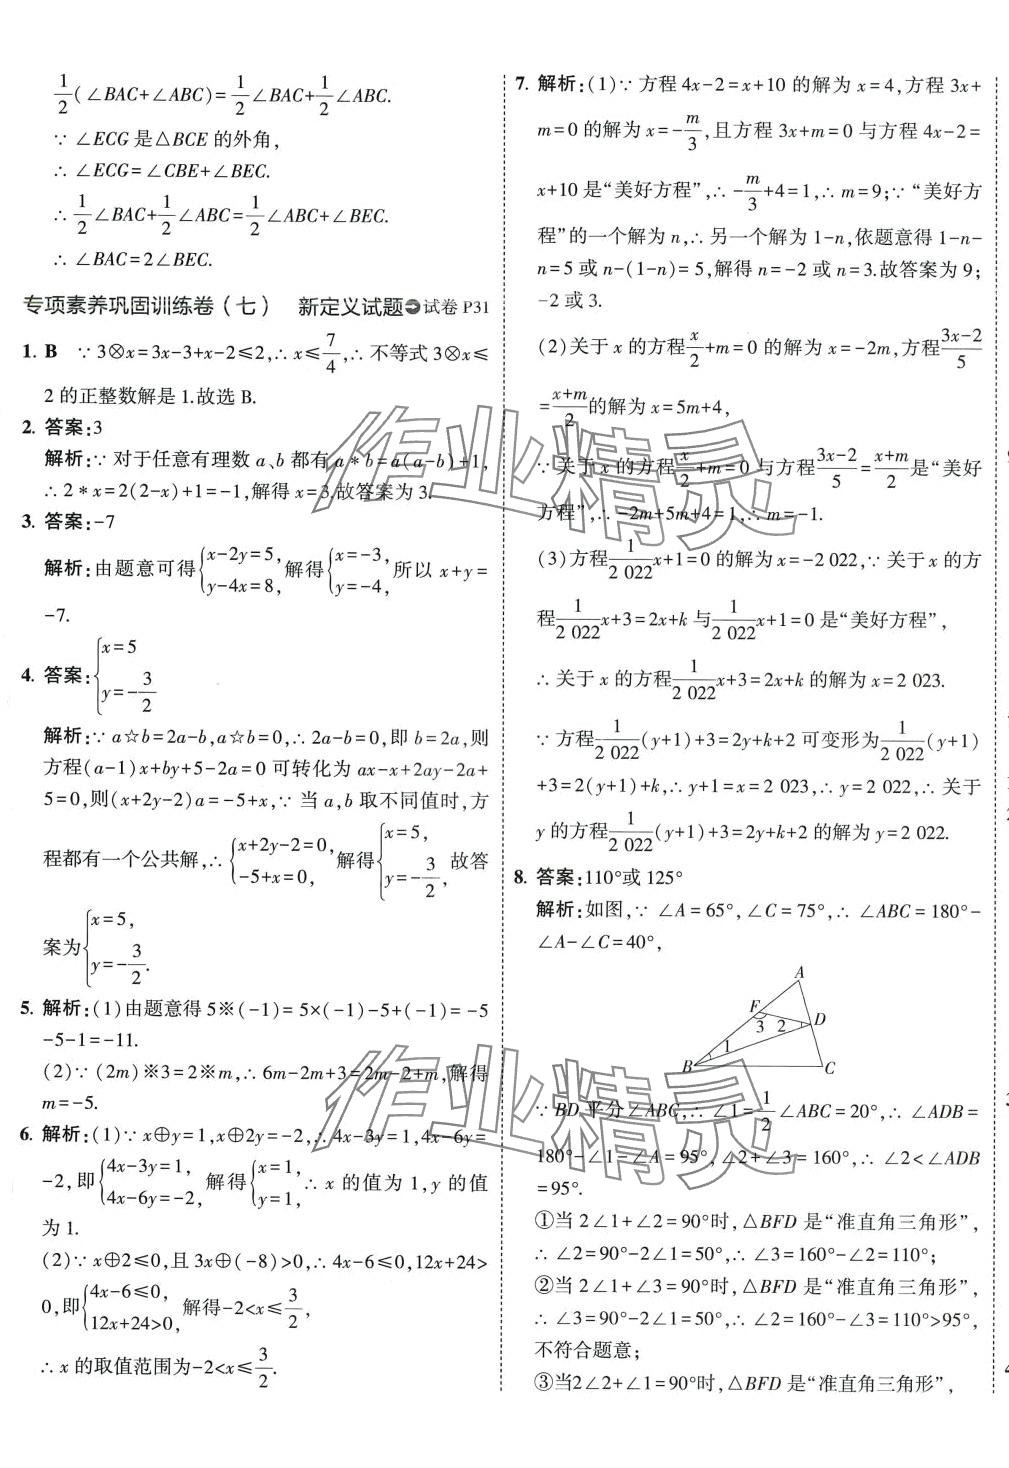 1/2(∠BAC+∠ABC)=1/2∠BAC+1/2∠ABC.
∵ ∠ECG 是△BCE 的外角,
∴ ∠ECG=∠CBE+∠BEC.
∴ 1/2∠BAC+1/2∠ABC=1/2∠ABC+∠BEC.
∴ ∠BAC=2∠BEC.
专项素养巩固训练卷(七) 新定义试题 试卷 P31
1. B ∵ 3⊗x=3x-3+x-2≤2,∴ x≤7/4,∴ 不等式 3⊗x≤
2 的正整数解是 1.故选 B.
2. 答案:3
解析:∵ 对于任意有理数 a、b 都有 a*b=a(a-b)+1,
∴ 2*x=2(2-x)+1=-1,解得 x=3.故答案为 3.
3. 答案:-7
解析:由题意可得{x-2y=5, y-4x=8, 解得{x=-3, y=-4, 所以 x+y=
-7.
4. 答案:{x=5 y=-3/2
解析:∵ a☆b=2a-b,a☆b=0,∴ 2a-b=0,即 b=2a,则
方程(a-1)x+by+5-2a=0 可转化为 ax-x+2ay-2a+
5=0,则(x+2y-2)a=-5+x,∵ 当 a,b 取不同值时,方
程都有一个公共解,∴ {x+2y-2=0, -5+x=0, 解得{x=5, y=-3/2, 故答
案为{x=5, y=-3/2.
5. 解析:(1)由题意得 5※(-1)=5×(-1)-5+(-1)=-5
-5-1=-11.
(2)∵ (2m)※3=2※m,∴ 6m-2m+3=2m-2+m,解得
m=-5.
6. 解析:(1)∵ x⊕y=1,x⊕2y=-2,∴ 4x-3y=1,4x-6y=
-2,即{4x-3y=1, 4x-6y=-2, 解得{x=1, y=1, ∴ x 的值为 1,y 的值
为 1.
(2)∵ x⊕2≤0,且 3x⊕(-8)>0,∴ 4x-6≤0,12x+24>
0,即{4x-6≤0, 12x+24>0, 解得-2<x≤3/2,
∴ x 的取值范围为-2<x≤3/2.
7. 解析:(1)∵ 方程 4x-2=x+10 的解为 x=4,方程 3x+
m=0 的解为 x=-m/3,且方程 3x+m=0 与方程 4x-2=
x+10 是“美好方程”,∴ -m/3+4=1,∴ m=9;∵“美好方
程”的一个解为 n,∴ 另一个解为 1-n,依题意得 1-n-
n=5 或 n-(1-n)=5,解得 n=-2 或 n=3.故答案为 9;
-2 或 3.
(2)关于 x 的方程x/2+m=0 的解为 x=-2m,方程(3x-2)/5
=(x+m)/2的解为 x=5m+4,
∵ 关于 x 的方程x/2+m=0 与方程(3x-2)/5=(x+m)/2是“美好
方程”,∴ -2m+5m+4=1,∴ m=-1.
(3)方程1/2 022x+1=0 的解为 x=-2 022,∵ 关于 x 的方
程1/2 022x+3=2x+k 与1/2 022x+1=0 是“美好方程”,
∴ 关于 x 的方程1/2 022x+3=2x+k 的解为 x=2 023.
∵ 方程1/2 022(y+1)+3=2y+k+2 可变形为1/2 022(y+1)
+3=2(y+1)+k,∴ y+1=x=2 023,∴ y=2 022,∴ 关于
y 的方程1/2 022(y+1)+3=2y+k+2 的解为 y=2 022.
8. 答案:110°或 125°
解析:如图,∵ ∠A=65°,∠C=75°,∴ ∠ABC=180°-
∠A-∠C=40°,
A
F
3 2 D
1
B C
∵ BD 平分∠ABC,∴ ∠1=1/2∠ABC=20°,∴ ∠ADB=
180°-∠1-∠A=95°,∠2+∠3=160°,∴ ∠2<∠ADB
=95°.
①当 2∠1+∠2=90°时,△BFD 是“准直角三角形”,
∴ ∠2=90°-2∠1=50°,∴ ∠3=160°-∠2=110°;
②当 2∠1+∠3=90°时,△BFD 是“准直角三角形”,
∴ ∠3=90°-2∠1=50°,∴ ∠2=160°-∠3=110°>95°,
不符合题意;
③当2∠2+∠1=90°时,△BFD 是“准直角三角形”,
作业精灵
作业精灵